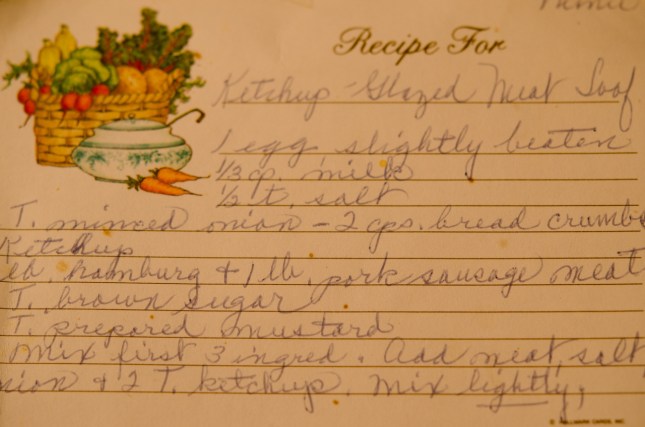 Recipe For
Ketchup - Glazed Meat Loaf
1 egg slightly beaten
1/3 cp. milk
1/2 t. salt
T. minced onion - 2 cps. bread crumbs
Ketchup
lb. hamburg & 1 lb. pork sausage meat
T. brown sugar
T. prepared mustard
Mix first 3 ingred. Add meat, salt
nion & 2 T. ketchup. Mix lightly,
© HALLMARK CARDS, INC.